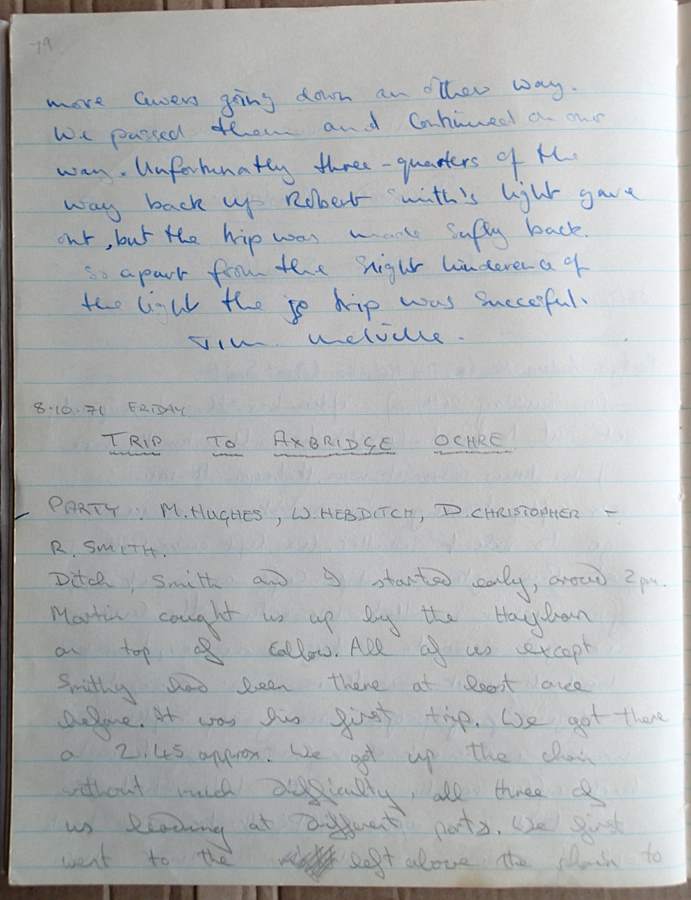 79
more cavers going down an other way.
We passed them and continued on our
way. Unfortunatly three-quarters of the
way back up Robert Smith's light gave
out, but the trip was made safly back.
so apart from the slight hinderence of
the light the trip was succesful.
Jim Melville.
8.10.71 FRIDAY
TRIP TO AXBRIDGE OCHRE
PARTY : M. HUGHES, W. HEBDITCH, D. CHRISTOPHER -
R. SMITH.
Ditch, Smith and I started early, around 2pm.
Martin caught us up by the Haybarn
on top of Callow. All of us except
Smithy had been there at least once
before. It was his first trip. We got there
a 2.45 approx. We got up the chain
without much difficulty, all three of
us leading at different parts. We first
went to the left above the chain to